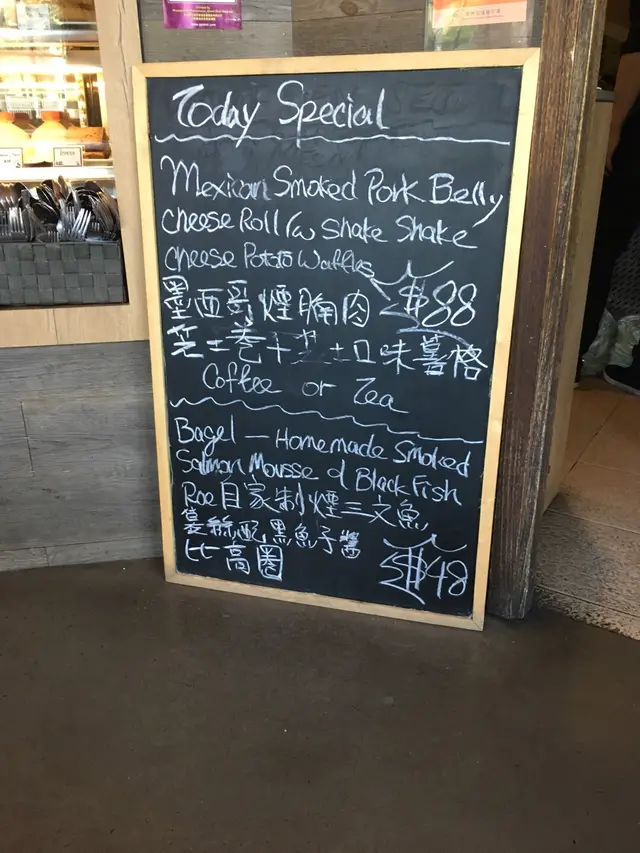 Today Special
Mexican Smoked Pork Belly
Cheese Roll /w Shake Shake
Cheese Potato Waffles
墨西哥煙腩肉 $88
芝士卷十芝士口味薯格
Coffee or Tea
Bagel — Homemade Smoked
Salmon Mousse & Black Fish
Roe 自家制煙三文魚
慕絲配黑魚子醬
比高圈 $48